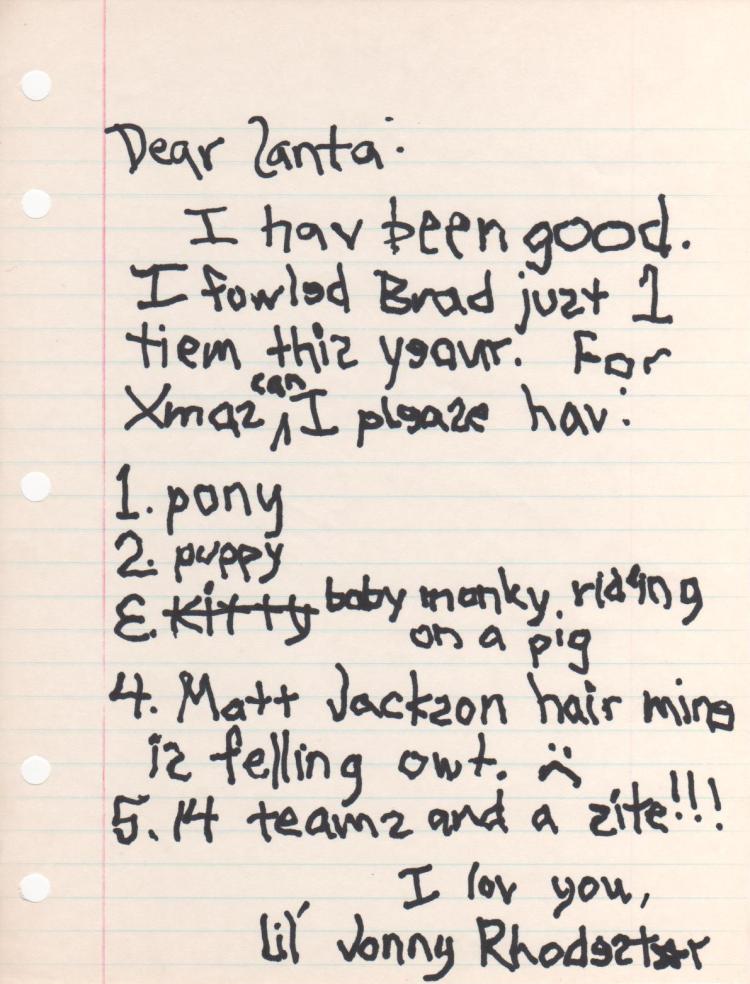 Dear Santa:
I hav been good.
I fowled Brad just 1
tiem this yeaur. For
Xmas can I please hav:
1. pony
2. puppy
3. kitty baby monky riding
on a pig
4. Matt Jackson hair mine
is felling owt. :(
5. 14 teams and a site!!!
I lov you,
Lil' Jonny Rhodestar